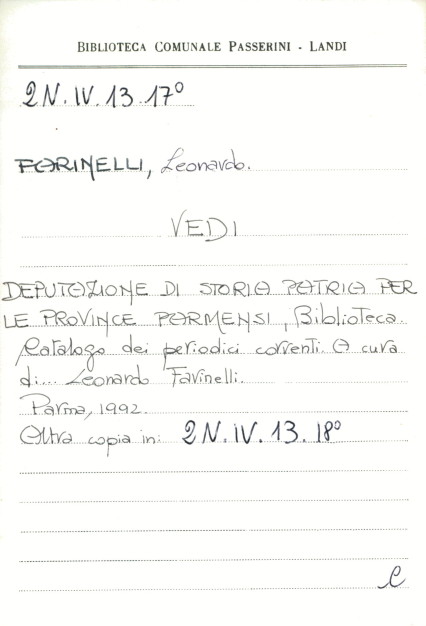 BIBLIOTECA COMUNALE PASSERINI - LANDI
2N.IV.13.17°
FARINELLI, Leonardo.
VEDI
DEPUTAZIONE DI STORIA PATRIA PER
LE PROVINCE PARMENSI, Biblioteca.
Catalogo dei periodici correnti. A cura
di... Leonardo Farinelli.
Parma, 1992.
Altra copia in: 2N.IV.13.18°